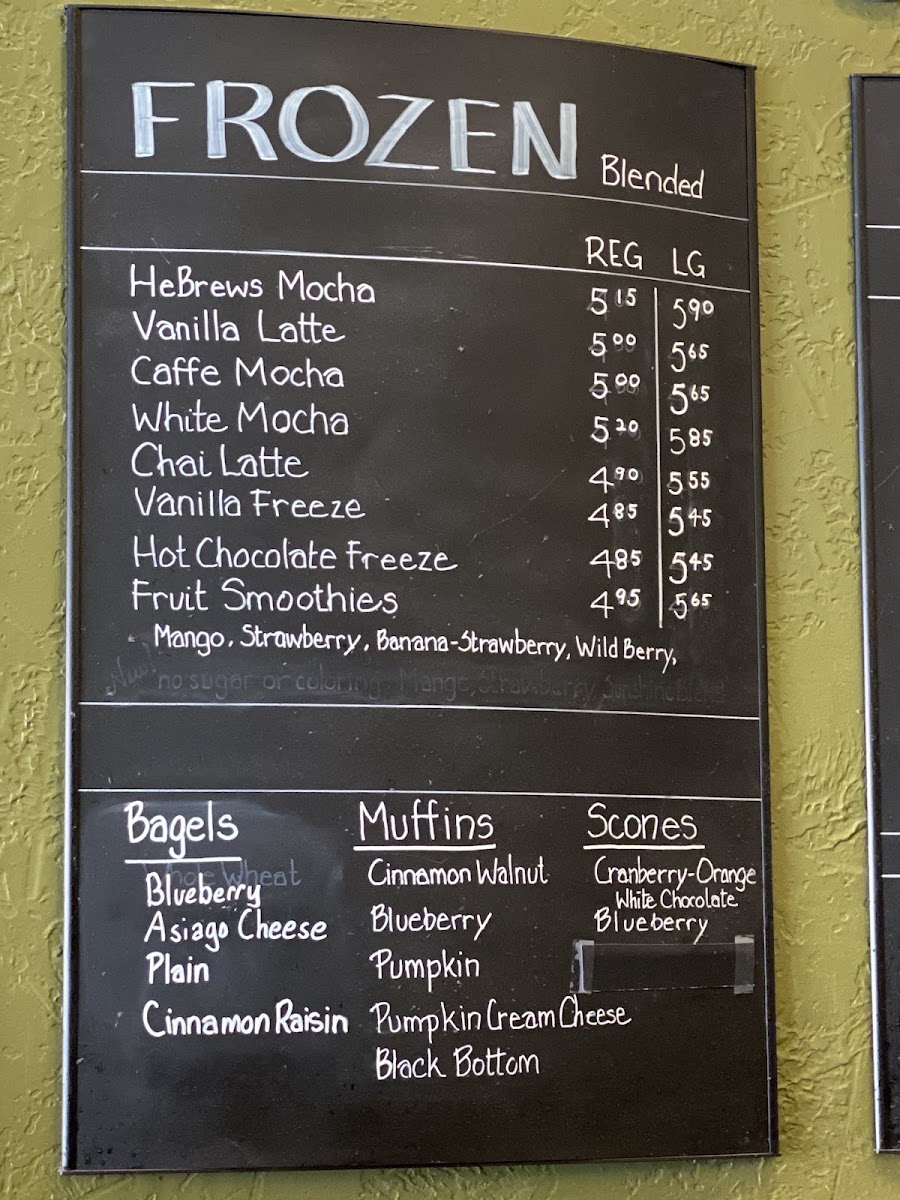 FROZEN Blended
REG LG
HeBrews Mocha 5 15 5 90
Vanilla Latte 5 00 5 65
Caffe Mocha 5 00 5 65
White Mocha 5 20 5 85
Chai Latte 4 90 5 55
Vanilla Freeze 4 85 5 45
Hot Chocolate Freeze 4 85 5 45
Fruit Smoothies 4 95 5 65
Mango, Strawberry, Banana-Strawberry, Wild Berry,
New! no sugar or coloring Mango, Strawberry, Sunshine Blend
Bagels
Whole Wheat
Blueberry
Asiago Cheese
Plain
Cinnamon Raisin
Muffins
Cinnamon Walnut
Blueberry
Pumpkin
Pumpkin Cream Cheese
Black Bottom
Scones
Cranberry-Orange
White Chocolate
Blueberry